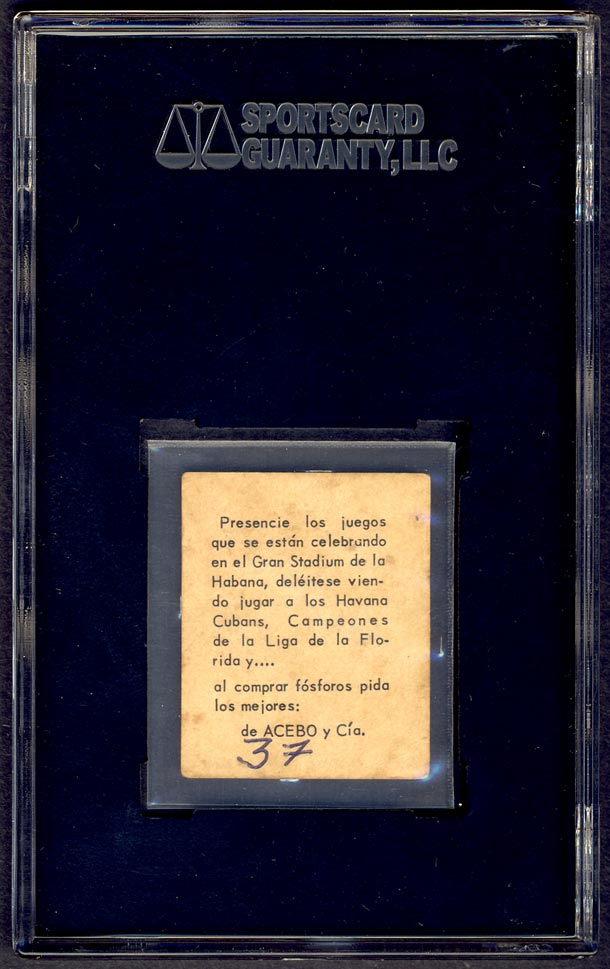 SPORTSCARD
GUARANTY, LLC
Presencie los juegos
que se están celebrando
en el Gran Stadium de la
Habana, deléitese vien-
do jugar a los Havana
Cubans, Campeones
de la Liga de la Flo-
rida y....
al comprar fósforos pida
los mejores:
de ACEBO y Cía.
37